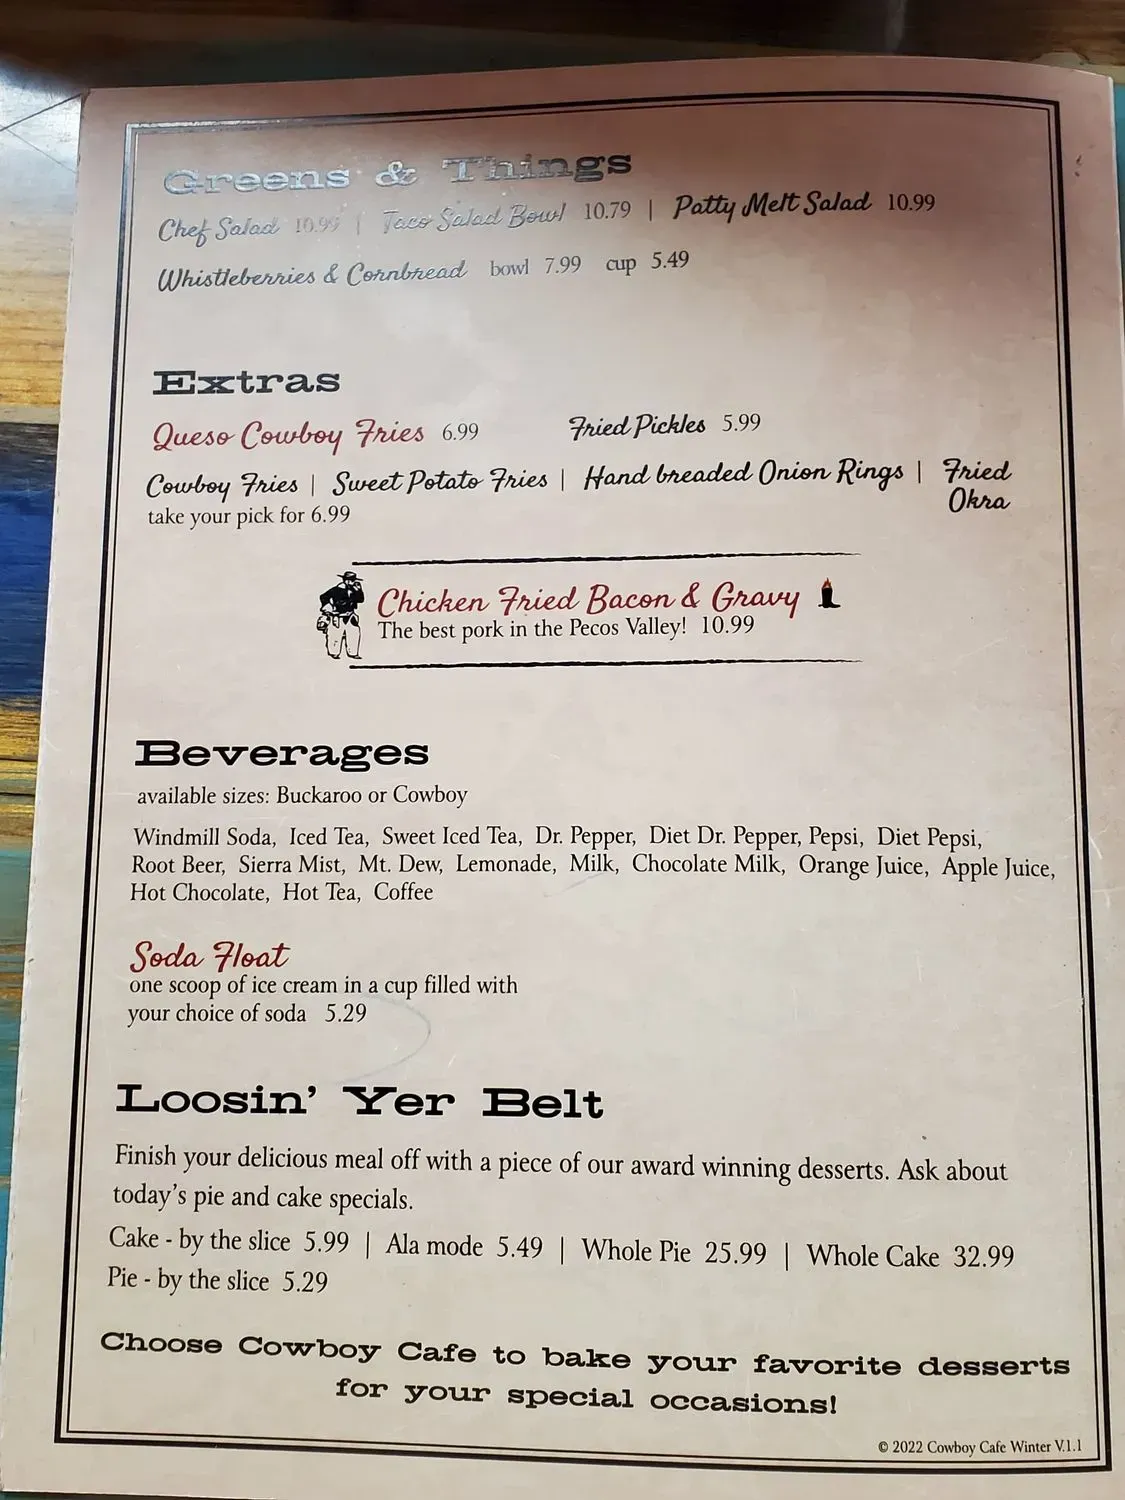 Greens & Things
Chef Salad 10.99 | Taco Salad Bowl 10.79 | Patty Melt Salad 10.99
Whistleberries & Cornbread bowl 7.99 cup 5.49
Extras
Queso Cowboy Fries 6.99 Fried Pickles 5.99
Cowboy Fries | Sweet Potato Fries | Hand breaded Onion Rings | Fried
Okra
take your pick for 6.99
Chicken Fried Bacon & Gravy
The best pork in the Pecos Valley! 10.99
Beverages
available sizes: Buckaroo or Cowboy
Windmill Soda, Iced Tea, Sweet Iced Tea, Dr. Pepper, Diet Dr. Pepper, Pepsi, Diet Pepsi,
Root Beer, Sierra Mist, Mt. Dew, Lemonade, Milk, Chocolate Milk, Orange Juice, Apple Juice,
Hot Chocolate, Hot Tea, Coffee
Soda Float
one scoop of ice cream in a cup filled with
your choice of soda 5.29
Loosin' Yer Belt
Finish your delicious meal off with a piece of our award winning desserts. Ask about
today's pie and cake specials.
Cake - by the slice 5.99 | Ala mode 5.49 | Whole Pie 25.99 | Whole Cake 32.99
Pie - by the slice 5.29
Choose Cowboy Cafe to bake your favorite desserts
for your special occasions!
© 2022 Cowboy Cafe Winter V.1.1